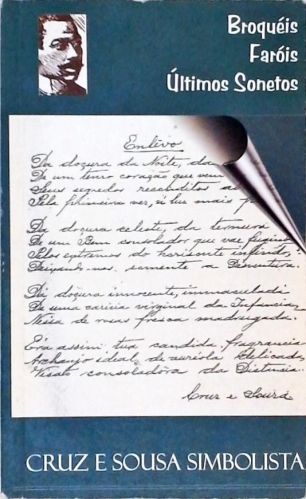 Broquéis
Faróis
Últimos Sonetos
Enlêvo
Da doçura da Noite, da doçura
De um tenro coração que vem
Seus segredos recebidos
Pela primeira vez, a luz mais
Da doçura celeste, da ternura
De um Bem consolador que vae fugindo
Pelos extremos do horisonte infindo,
Deixando-nos, somente a Desventura.
Da doçura innocente, immaculada
De uma caricia virginal da Infancia,
Nessa de rosas fresca madrugada.
Era assim tua candida fragrancia
Archanjo ideal de auréola delicada,
Visão consoladora da Distancia.
Cruz e Sousa
CRUZ E SOUSA SIMBOLISTA